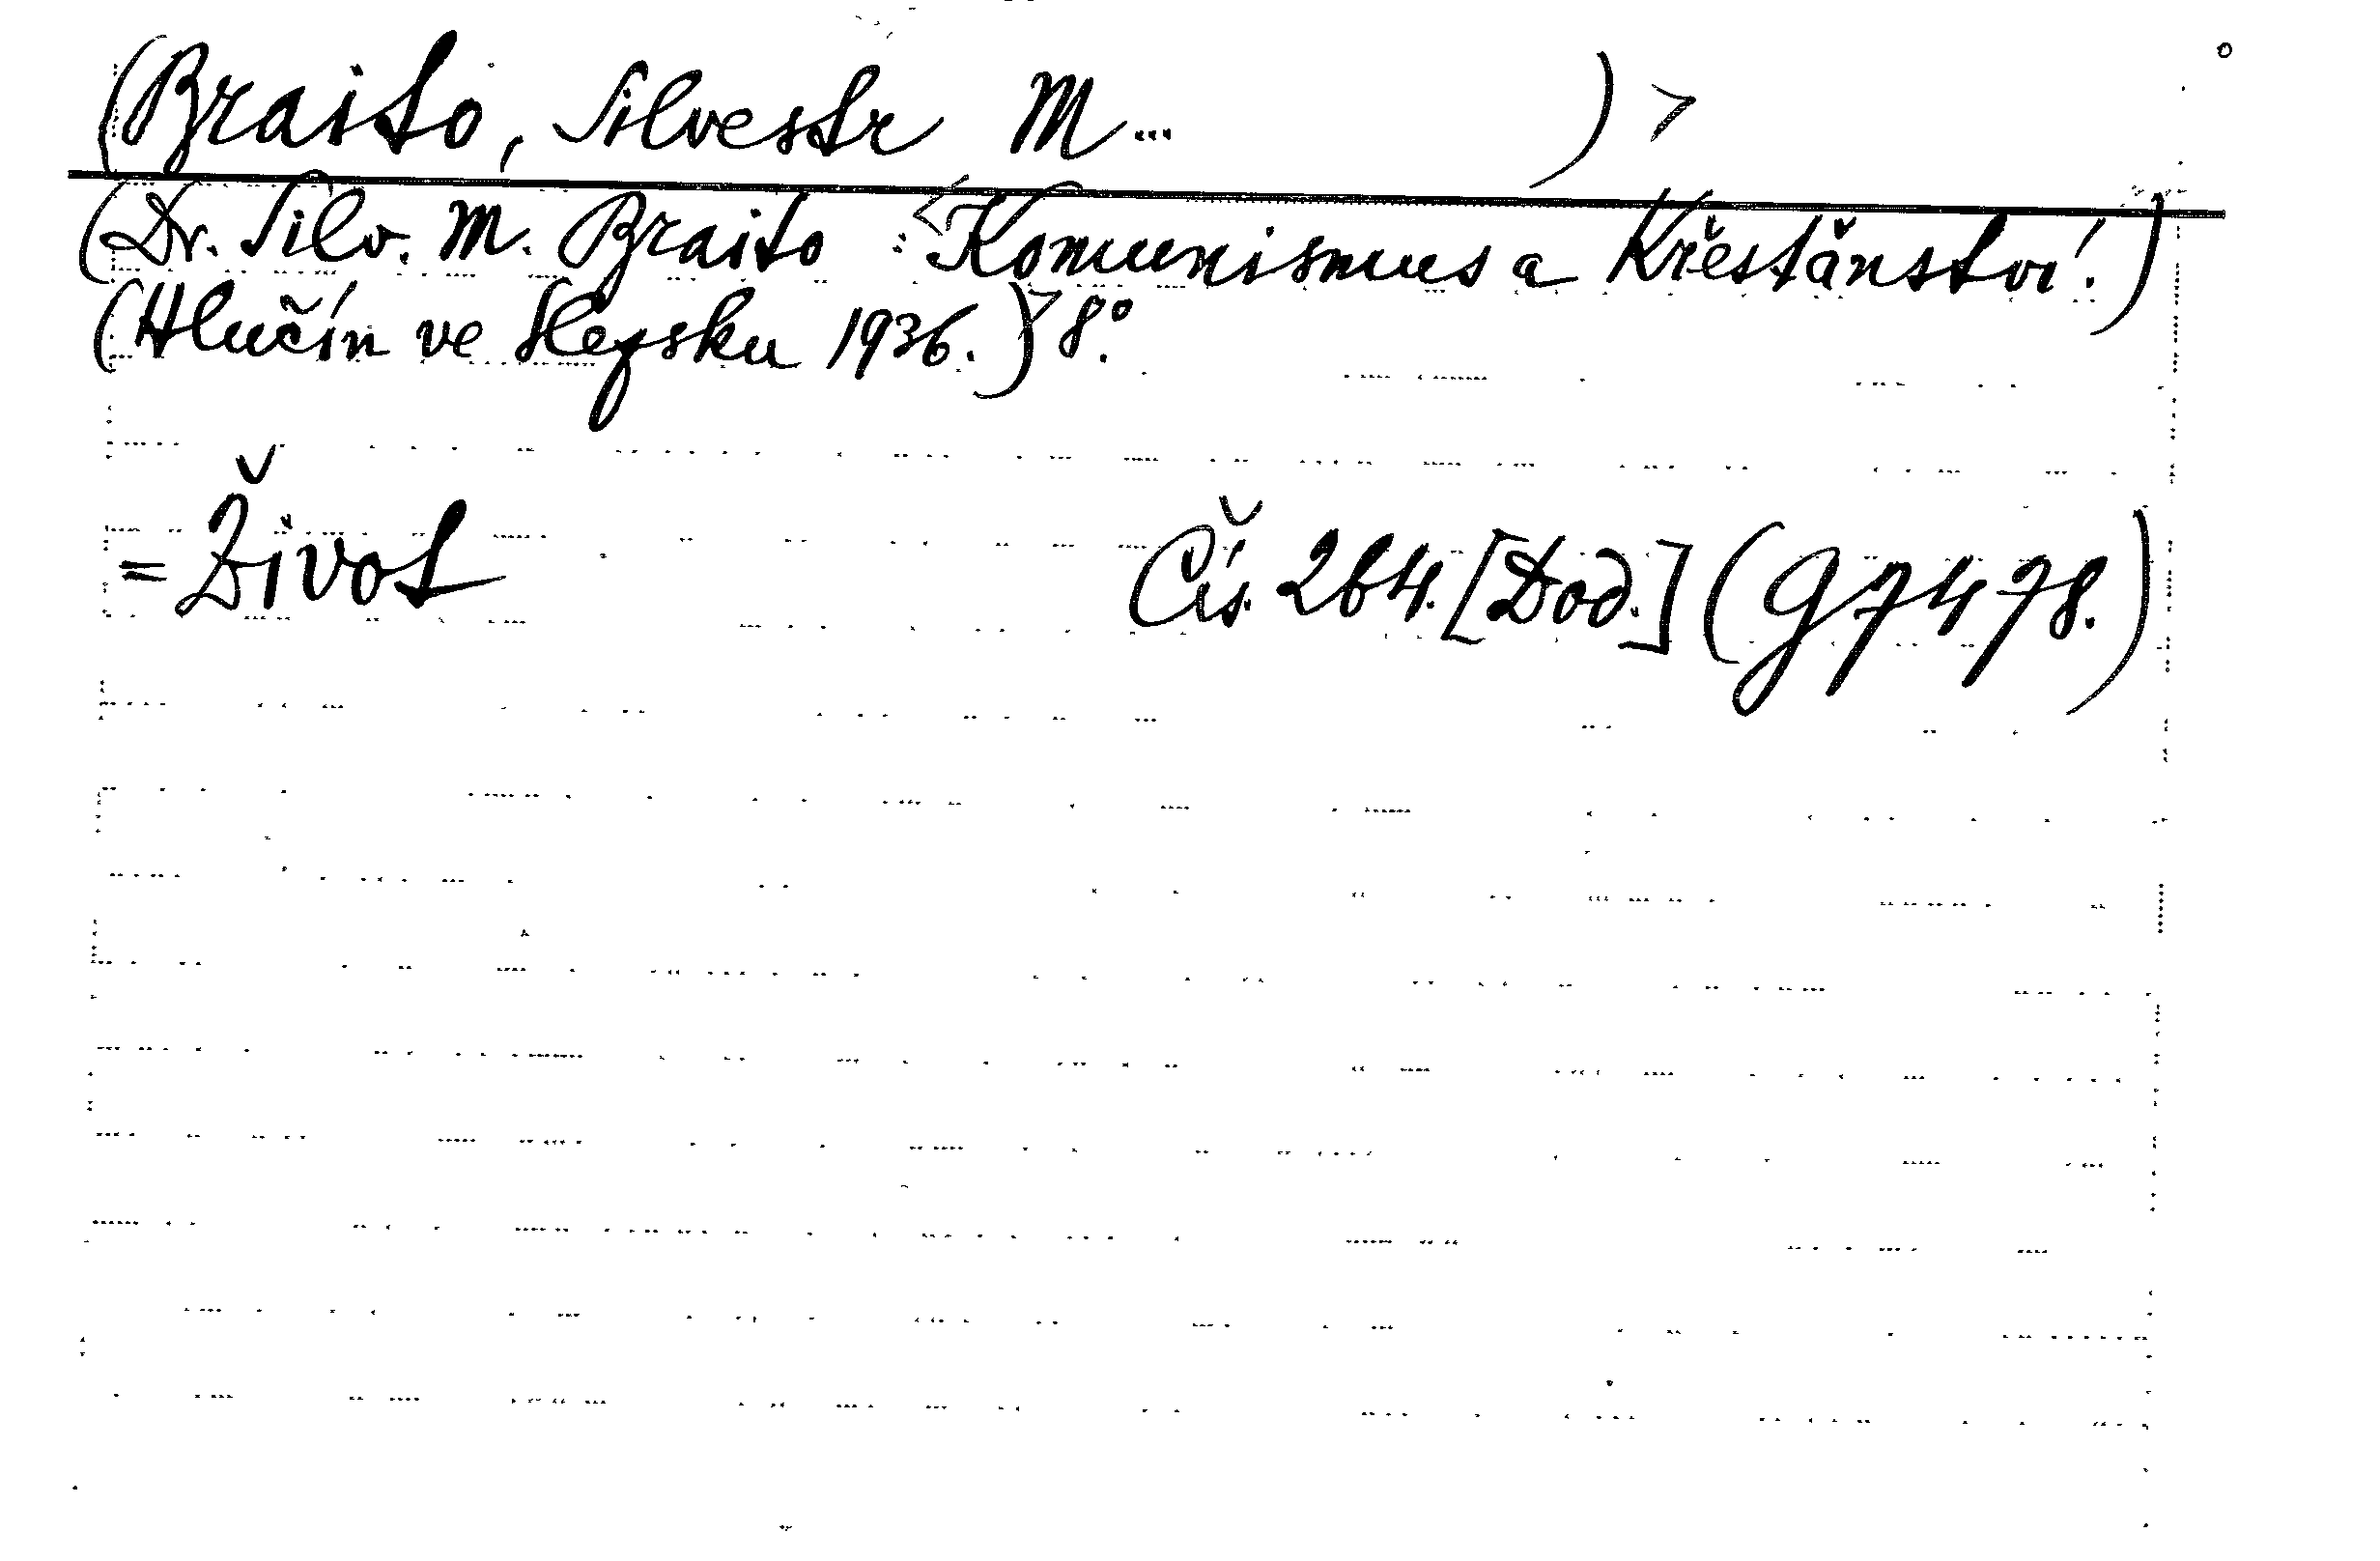 (Braito, Silvestr M... ) >
(Dr. Silv. M. Braito : <Komunismus a Křesťanství.)
(Hlučín ve Slezsku 1936.)> 8°.
= Život Čís. 264. [Dod.] (G 7478.)